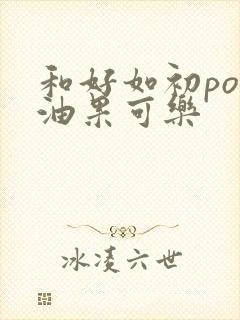 和好如初po
油果可樂
冰凌六世